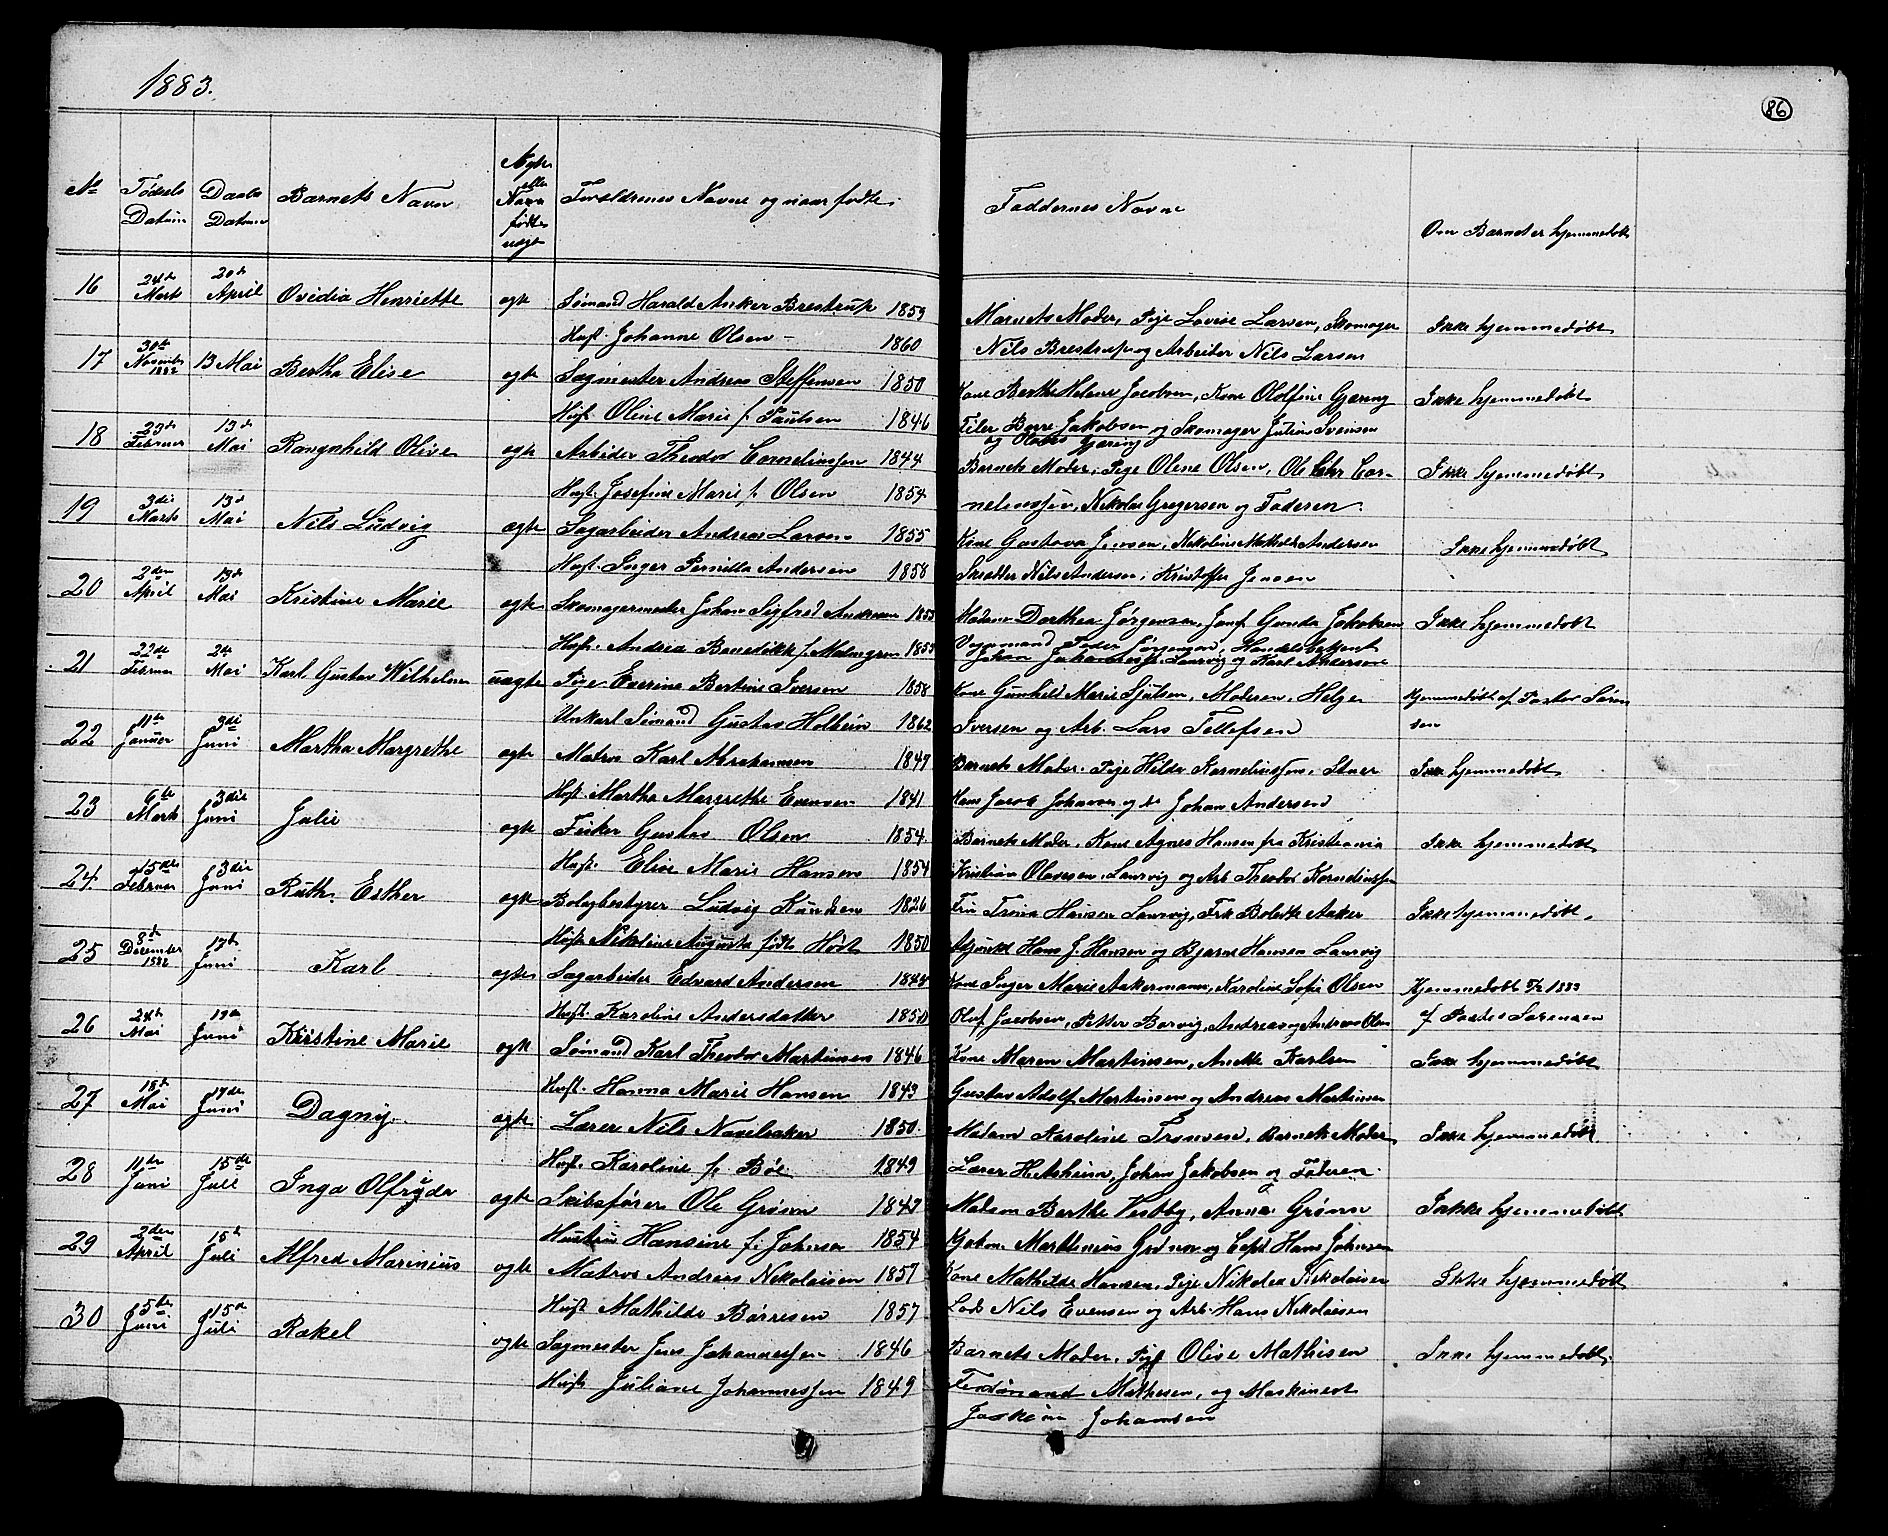 1883.
86
No Fødsels Datum Daabs Datum Barnets Navn Ægte eller Uægte født Forældrenes Navne og naar fødte. Faddernes Navne Om Barnet er hjemmedøbt
16 24de Marts 20de April Ovidia Henriette ægte Sømand Harald Anker Brestrup 1859 Barnets Moder, Pige Lovise Larsen, Skomager Ikke hjemmedøbt
Hust. Johanne Olsen 1860 Nils Brestrup og Arbeider Nils Larsen
17 30te November 1882 13 Mai Bertha Elise ægte Sagmester Andreas Steffensen 1850 Kone Berthe Helene Jacobsen, Kone Oloffine Gjæring Ikke hjemmedøbt
Hust. Oline Marie f. Paulsen 1846 Feiler Børre Jakobsen og Skomager Julius Svensen
og Olaves Gjæring
18 23de Februar 13de Mai Rangnhild Olive ægte Arbider Theodor Corneliussen 1844 Barnets Moder, Pige Olene Olsen, Ole Chr Cor- Ikke hjemmedøbt
Hust. Josefine Marie f. Olsen 1854 neliussen, Nikolai Gregersen og Faderen.
19 3die Marts 13d Mai Nils Ludvig ægte Sagarbeider Andreas Larsen 1855 Kone Gustava Jensen, Nikoline Mathilde Andersen Ikke hjemmedøbt
Hust. Inger Pernille Andersen 1858 Skrædder Nils Andersen, Kristoffer Jensen
20 2den April 13de Mai Kristine Marie ægte Skomagermester Johan Sigfred Andersen 1853 Madam Dorthea Jørgensen, Jomf. Gunda Jakobsen Ikke hjemmedøbt
Hust. Andrea Benedikte f. Malmgren 1855 Vognmand Peder Jørgensen, Handelsbetjent
Johan Johannessen Laurvig og Karl Anderson
21 22de Februar 24 Mai Karl Gustav Wilhelm uægte Pige Everine Bertine Iversen 1858 Kone Gunhild Marie Sjulsen, Moderen, Helge Hjemmedøbt af Pastor Søren
Unkarl Sømand Gustav Holbein 1862 Iversen og Arb. Lars Tellefsen sen
22 11te Januar 3die Juni Martha Margrethe ægte Matros Karl Abrahamsen 1849 Barnets Moder, Pige Hilda Korneliussen, Ikke hjemmedøbt
Hust. Martha Margrethe Evensen 1841 Hans Jacob Johansen og do Johan Andersen
23 6te Marts 3die Juni Julie ægte Fisker Gustav Olsen 1854 Barnets Moder, Kone Agnes Hansen fra Kristiania Ikke hjemmedøbt
Hust. Elise Marie Hansen 1854 Kristian Olavesen, Laurvig og Arb. Theodor Korneliussen
24 15de Februar 3die Juni Ruth Esther ægte Bolagbestyrer Ludvig Knudsen 1826 Fru Trina Hansen Laurvig, Frk Bolette Aaker Ikke hjemmedøbt.
Hust. Nikoline Augusta født Høst 1850 Adjunkt Hans J. Hansen og Bjarne Hansen Laurvig
25 8de December 1882 17de Juni Karl ægte Sagarbeider Edvard Andersen 1844 Kone Inger Marie Aakermann, Karoline Sofie Olsen Hjemmedøbt 1883
Hust. Karoline Andersdatter 1850 Oluf Jacobsen, Petter Borvig, Andreas og Andreas Olsen af Pastor Sørensen
26 24de Mai 17de Juni Kristine Marie ægte Sømand Karl Theodor Martinsen 1846 Kone Maren Martinsen, Anette Karlsen Ikke hjemmedøbt
Hust. Hanna Marie Hansen 1843 Gustav Adolf Martinsen og Andreas Martinsen
27 15de Mai 17de Juni Dagny. ægte Lærer Nils Navelsaker 1850 Madam Karoline Tronsen, Barnets Moder, Ikke hjemmedøbt
Hust. Karoline f. Bøe 1849 Lærer Hetsheim, Johan Jakobsen og Faderen.
28 11te Juni 15de Juli Inga Olfryda ægte Skibsfører Ole Grønn 1847 Madam Berthe Vestby, Anna Grønn Ikke hjemmedøbt
Hustru Hansine f. Johnsen 1854 Martinius Grønn og Capt Hans Johnsen
29 2den April 15de Juli Alfred Marinius ægte Matros Andreas Nikolaisen 1857 Kone Mathilde Hansen, Pige Nikolea Nikolaisen Ikke hjemmedøbt
Hust Mathilde Børresen 1857 Lods Nils Evensen og Arb. Hans Nikolaisen
30 5te Juni 15de Juli Rakel ægte Sagmester Jens Johannessen 1846 Barnets Moder, Pige Olise Mathisen Ikke hjemmedøbt.
Hust Juliane Johannessen 1849 Ferdinand Mathesen, og Maskinest
Joakim Johansen